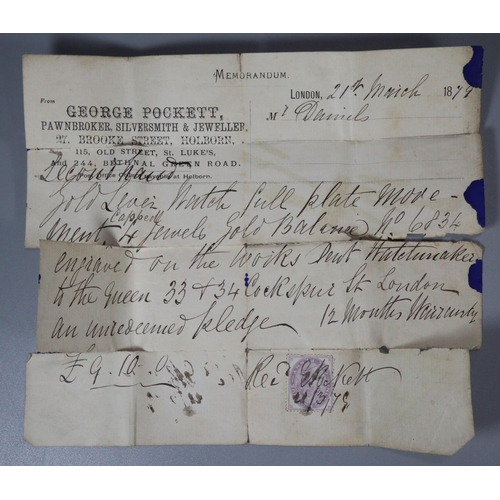 MEMORANDUM.
From
LONDON, 21st March 1879
GEORGE POCKETT,
Mr Daniels
PAWNBROKER, SILVERSMITH & JEWELLER,
27, BROOKE STREET, HOLBORN.
115, OLD STREET, ST. LUKE'S,
AND 244, BETHNAL GREEN ROAD.
at Holborn.
Gold Lever Watch full plate Move-
ment capped 4 Jewels Gold Balance No 6834
engraved on the works Dent Watchmaker
to the Queen 33 & 34 Cockspur St London
an unredeemed pledge 12 Months Warranty
£9.10.0 Recd G Pockett
21/3/79